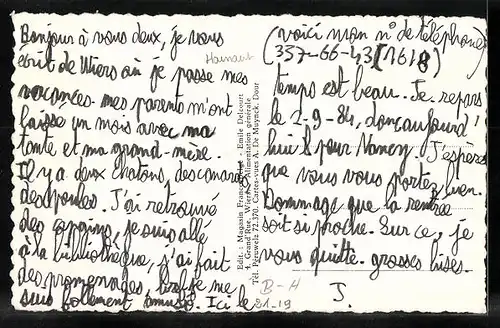 Bonjour à vous deux, je vous
écrit de Wiers où je passe mes
Hainaut
vacances. mes parents m'ont
laissé un mois avec ma
tante et ma grand-mère.
Il y a deux chatons, des canards
des poules. J'ai retrouvé
des copains, je suis allé
à la bibliothèque, j'ai fait
des promenades, bref je me
suis follement amusé. Ici le
Edit. : Magasin Franco-Belge : Emile Delcourt
4, Grand Rue, Wiers - Alimentation générale
Tél. Péruwelz 72.370. Cartes-vues A. De Muynck, Dour
(voici mon n° de téléphone)
337-66-43 (1618)
temps est beau. Je repars
le 2-9-84, donc aujourd'
hui 8 pour Nancy. J'espère
que vous vous portez bien.
Dommage que la rentrée
soit si proche. Sur ce, je
vous quitte. grosses bises.
J.
B-H
21-19